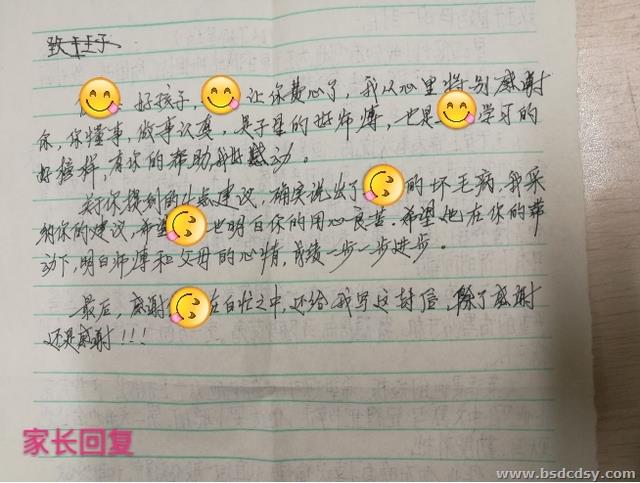 好孩子,让你费心了,我从心里特别感谢
你,你懂事,做事认真,是子墨的好师傅,也是学习的
好榜样,有你的帮助,我好感动。
关于你提到的4点建议,确实说出了的坏毛病,我采
纳你的建议,希望也明白你的用心良苦。希望他在你的带
动下,明白师傅和父母的心情,成绩一步一步进步。
最后,感谢在百忙之中,还给我写这封信,除了感谢
还是感谢!!!
家长回复
www.bsdcdsy.com